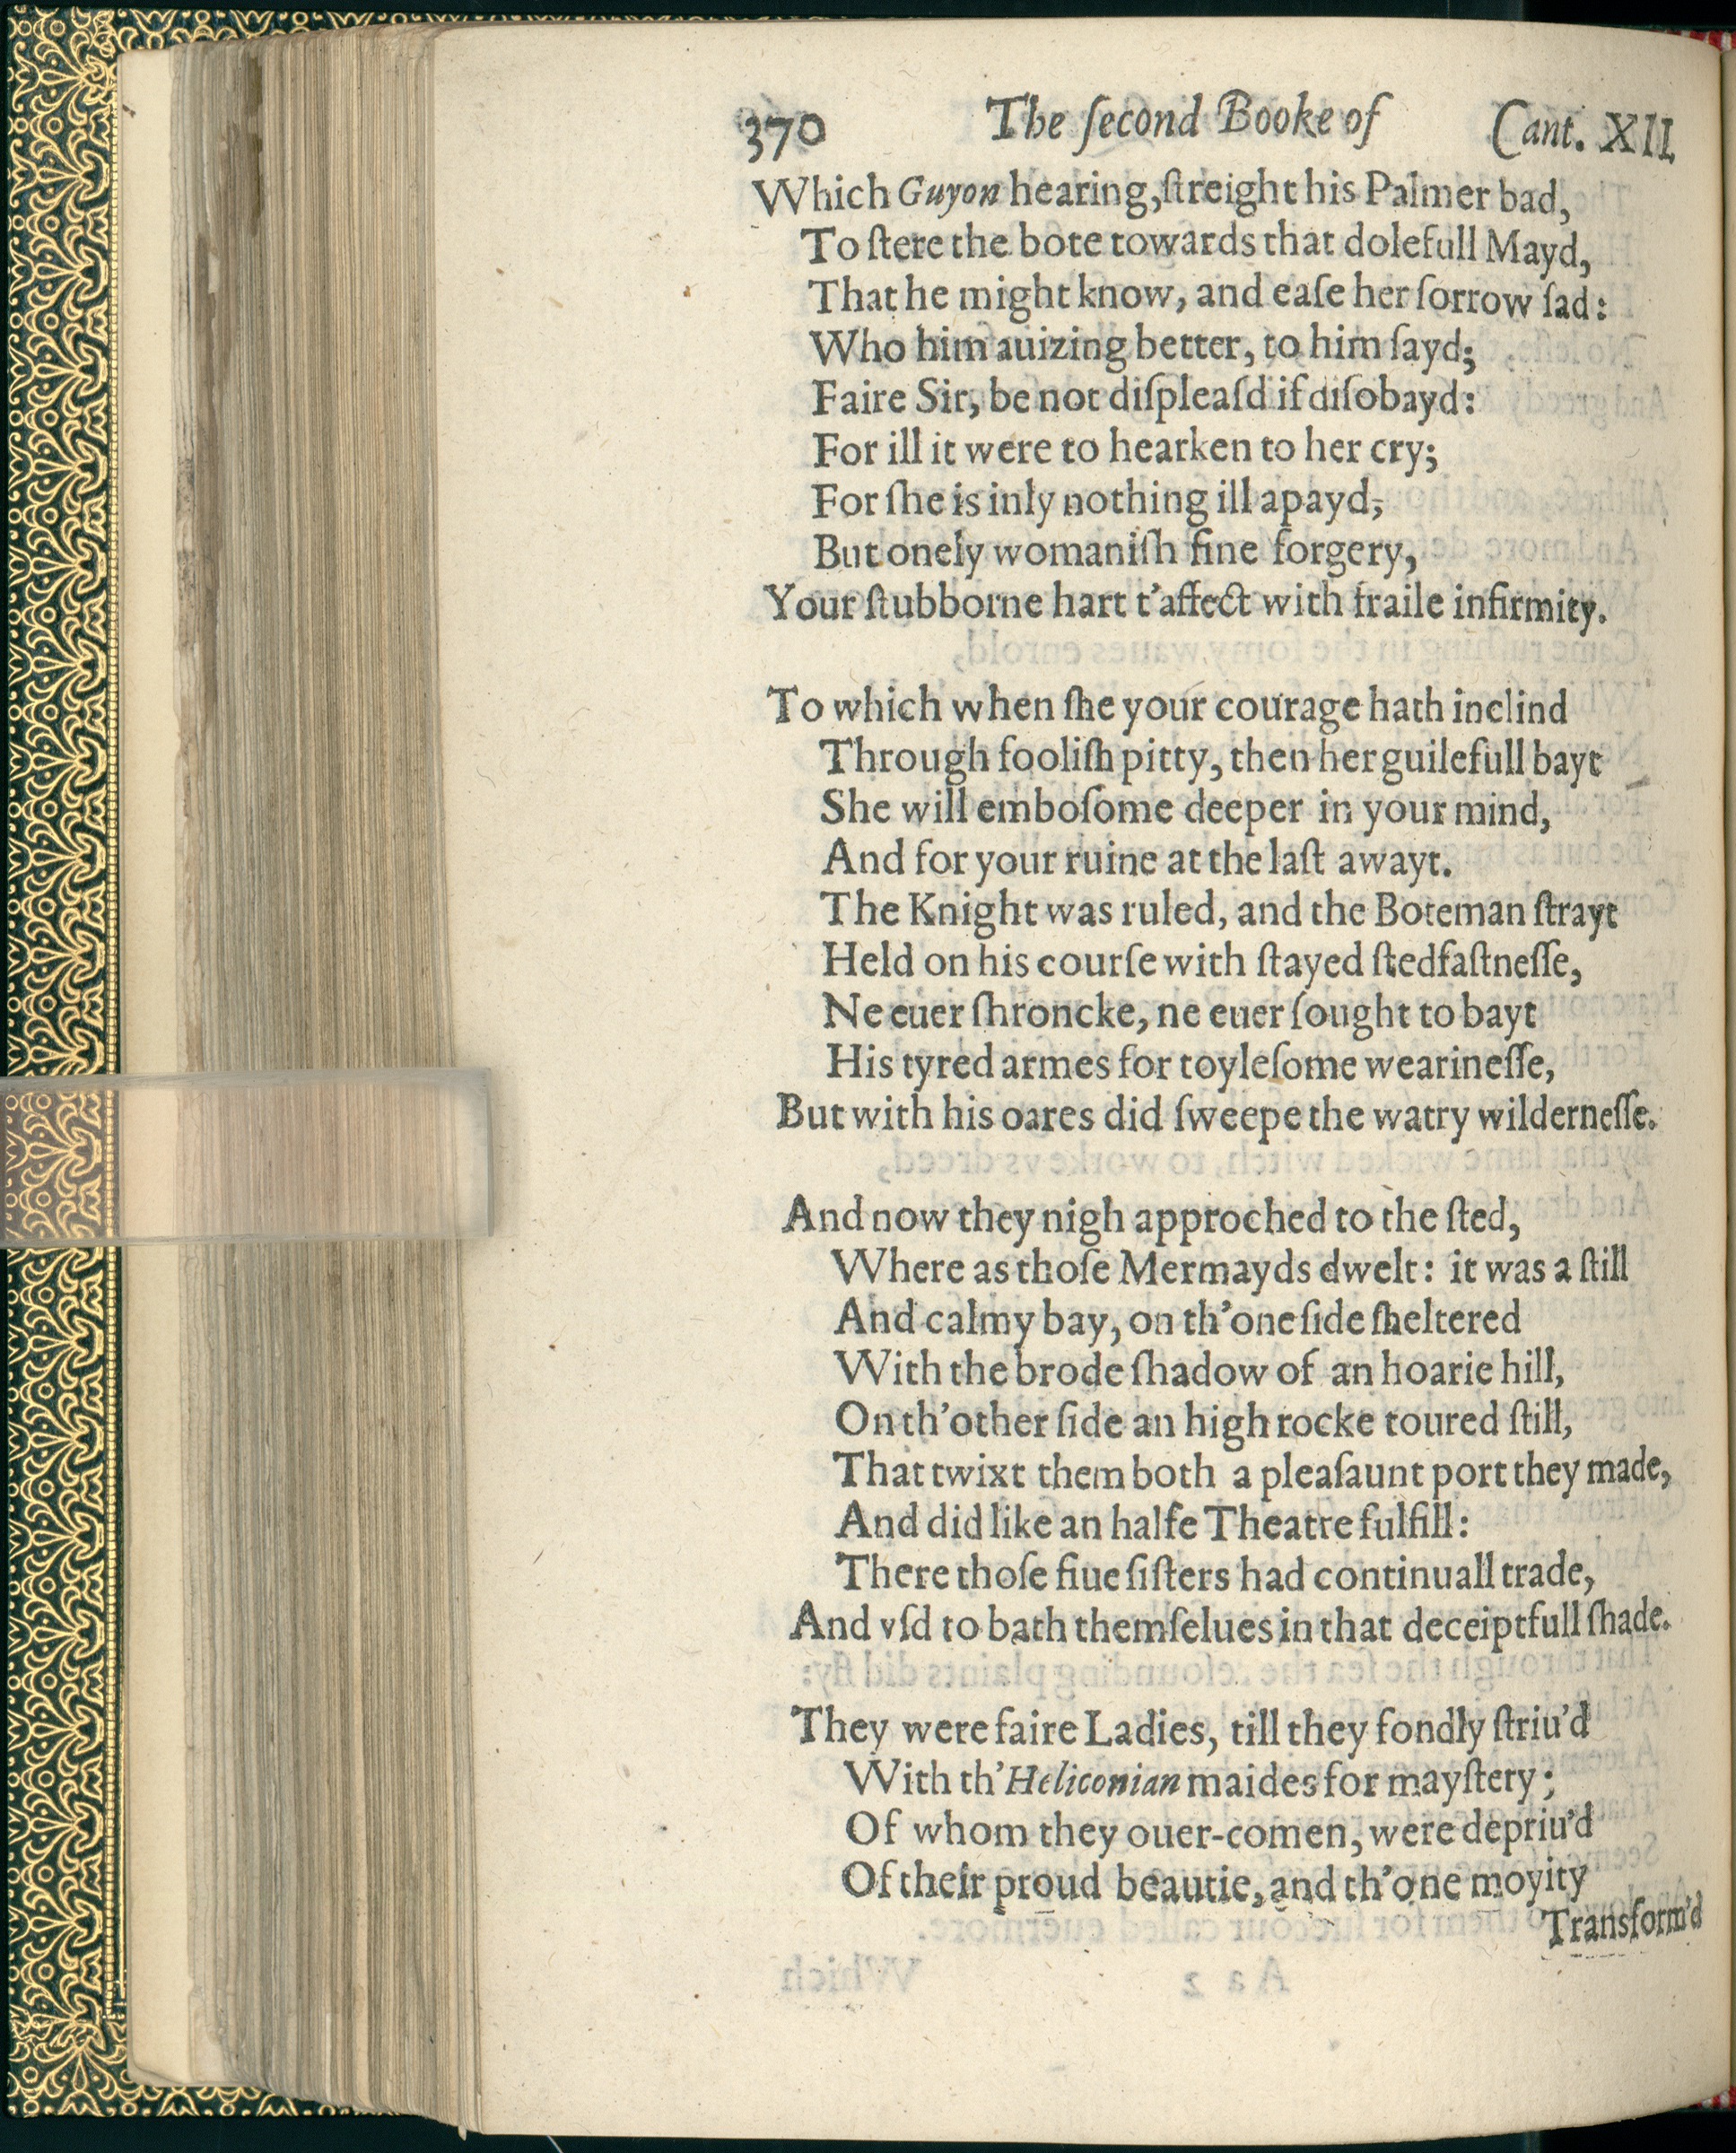 370 The ſecond Booke of Cant. XII.
Which Guyon hearing, ſtreight his Palmer bad,
To ſtere the bote towards that dolefull Mayd,
That he might know, and eaſe her ſorrow ſad:
Who him auizing better, to him ſayd;
Faire Sir, be not diſpleaſd if diſobayd:
For ill it were to hearken to her cry;
For ſhe is inly nothing ill apayd,
But onely womaniſh fine forgery,
Your ſtubborne hart t'affect with fraile infirmity.
To which when ſhe your courage hath inclind
Through fooliſh pitty, then her guilefull bayt
She will emboſome deeper in your mind,
And for your ruine at the laſt awayt.
The Knight was ruled, and the Boteman ſtrayt
Held on his courſe with ſtayed ſtedfaſtneſſe,
Ne euer ſhroncke, ne euer ſought to bayt
His tyred armes for toyleſome wearineſſe,
But with his oares did ſweepe the watry wilderneſſe.
And now they nigh approched to the ſted,
Where as thoſe Mermayds dwelt: it was a ſtill
And calmy bay, on th'one ſide ſheltered
With the brode ſhadow of an hoarie hill,
On th'other ſide an high rocke toured ſtill,
That twixt them both a pleaſaunt port they made,
And did like an halfe Theatre fulfill:
There thoſe fiue ſiſters had continuall trade,
And vſd to bath themſelues in that deceiptfull ſhade.
They were faire Ladies, till they fondly ſtriu'd
With th'Heliconian maides for mayſtery;
Of whom they ouer-comen, were depriu'd
Of their proud beautie, and th'one moyity
Transform'd